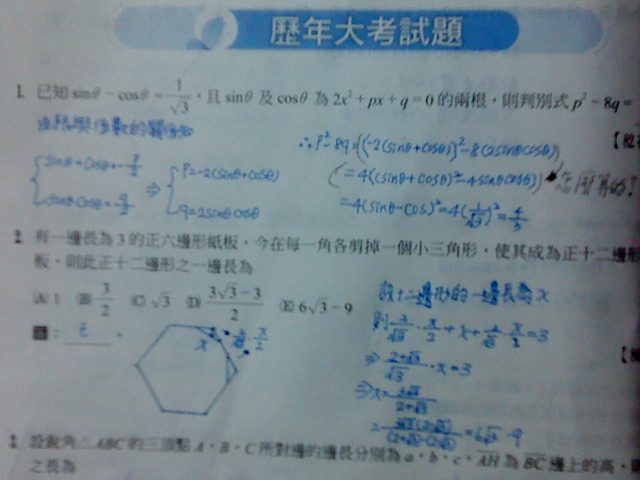 歷年大考試題
1. 已知 sinθ − cosθ = 1/√3，且 sinθ 及 cosθ 為 2x² + px + q = 0 的兩根，則判別式 p² − 8q =
由根與係數的關係知
sinθ + cosθ = −p/2
sinθ cosθ = q/2
⇒ p = −2(sinθ + cosθ)
q = 2sinθ cosθ
∴ p² − 8q = (−2(sinθ + cosθ))² − 8(2sinθcosθ)
(= 4((sinθ + cosθ)² − 4sinθcosθ)) 怎麼算的?
= 4(sinθ − cos)² = 4(1/√3)² = 4/3
2. 有一邊長為 3 的正六邊形紙板，今在每一角各剪掉一個小三角形，使其成為正十二邊形
板，則此正十二邊形之一邊長為
(A) 1 (B) 3/2 (C) √3 (D) (3√3 − 3)/2 (E) 6√3 − 9
答：E。
x x/2
設十二邊形的一邊長為 x
則 2/√3 · x/2 + x + 2/√3 · x/2 = 3
⇒ (2+√3)/√3 · x = 3
⇒ x = 3√3/(2+√3)
= 6√3 − 9
設銳角△ABC 的三頂點 A、B、C 所對邊的邊長分別為 a、b、c，AH 為 BC 邊上的高，
之長為